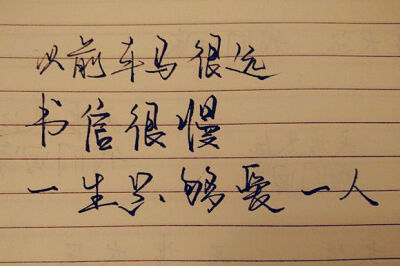 以前车马很远
书信很慢
一生只够爱一人